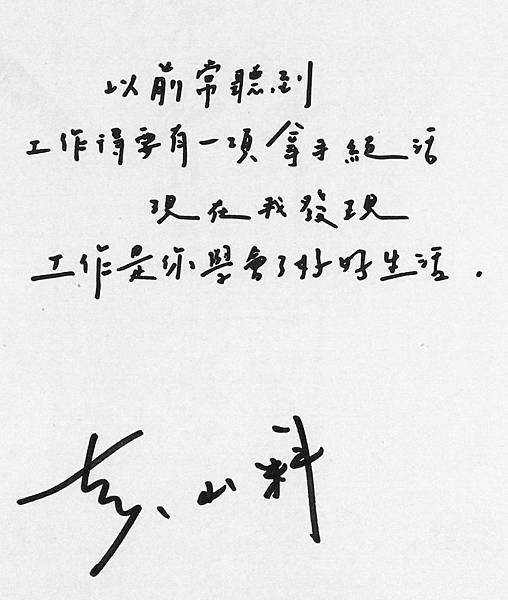 以前常聽到
工作得要有一項拿手絕活
現在我發現
工作是你學會了好好生活.